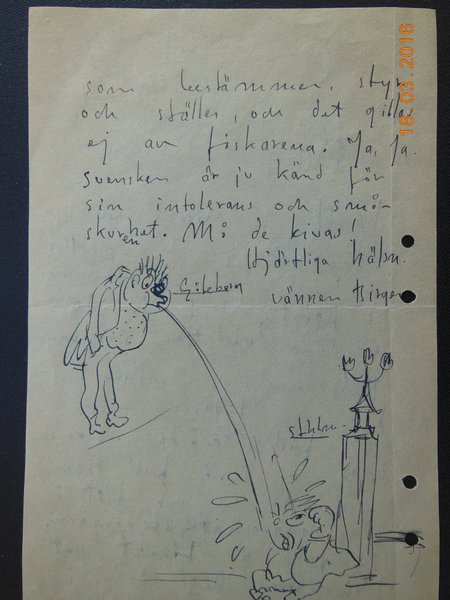 som bestämmer, styr
och ställer, och det gillas
ej av fiskarena. Ja, Ja.
Svensken är ju känd för
sin intolerans och små-
skurenhet. Må de kivas!
Hjärtliga häls.
vännen Birger
Göteborg
sthlm.
18.03.2016